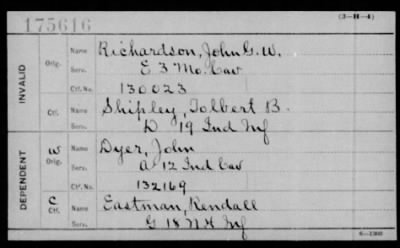 175616
(3-H-4)
INVALID
Orig.
Name Richardson, John G. W.
Serv. E 3 Mo. Cav
Ctf. No. 130023
Ctf.
Name Shipley, Tolbert B.
Serv. D 19 Ind Inf
DEPENDENT
W
Orig.
Name Dyer, John
Serv. A 12 Ind Cav
Ctf. No. 132169
C
Ctf.
Name Eastman, Kendall
Serv. G 18 N H Inf